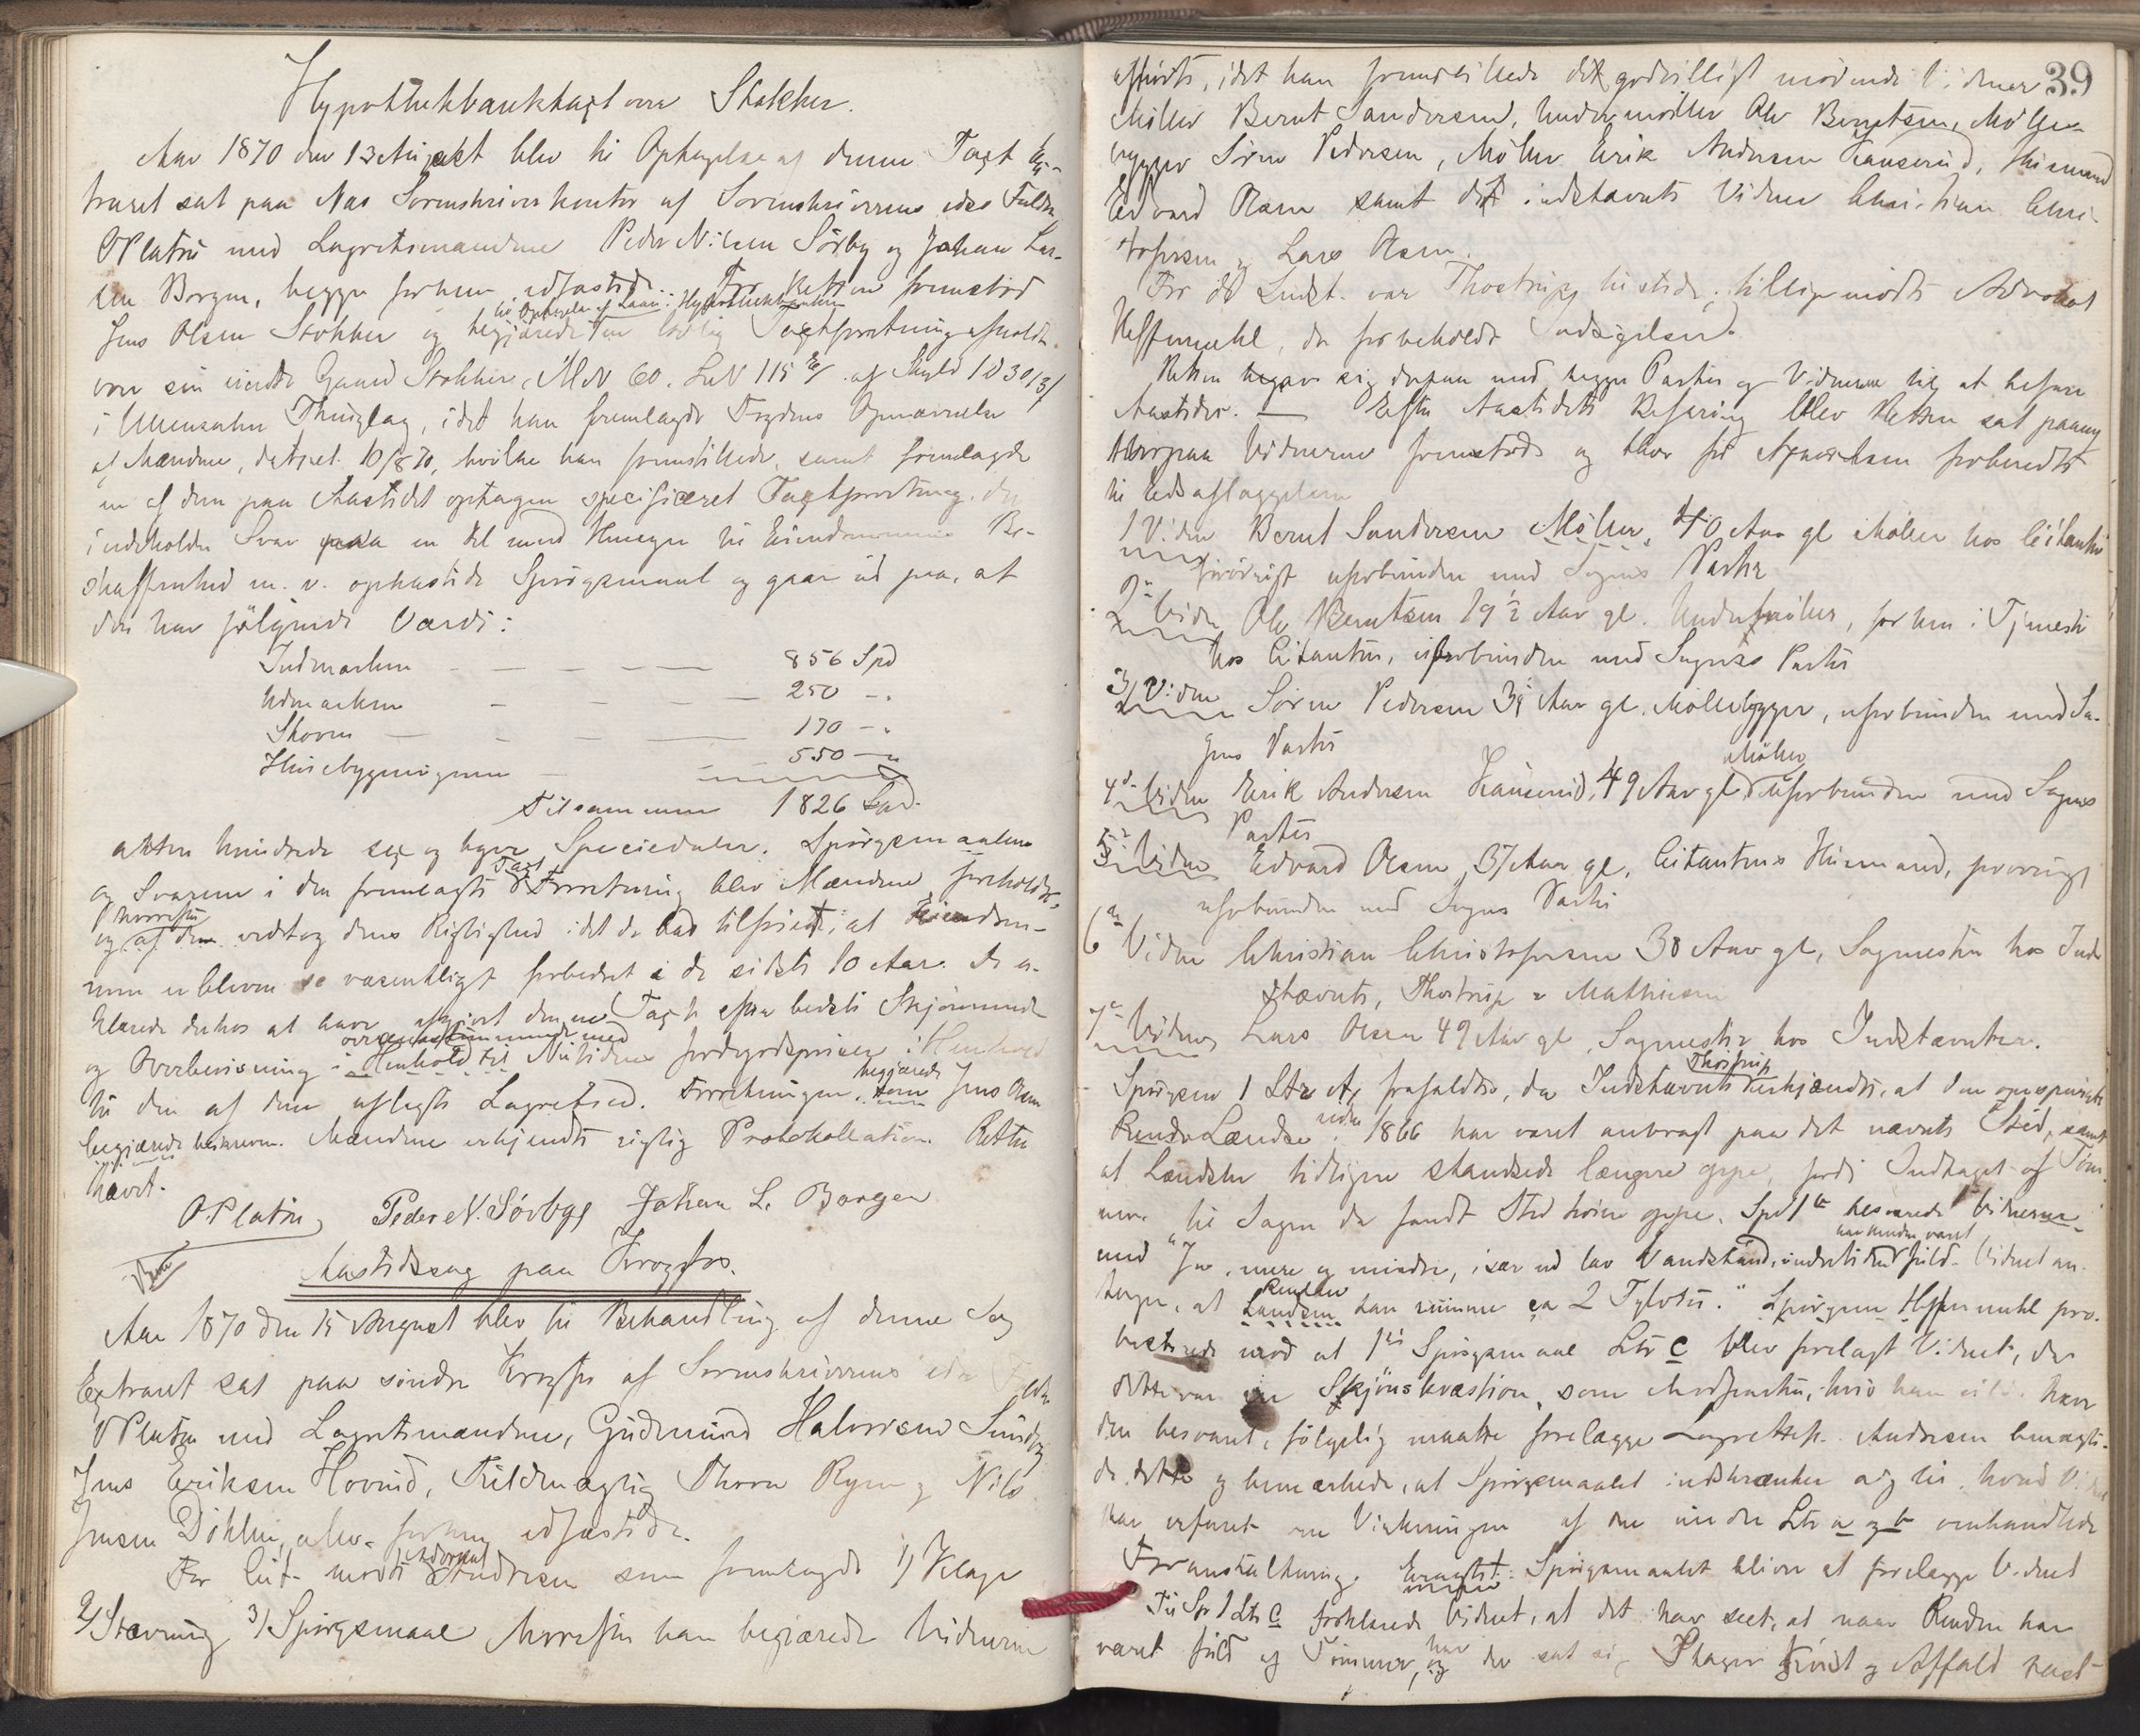 Hypothekbanktaxt over Stokker.
Aar 1870 den 13 August blev til Optagelse af denne Taxt Ex-
traret sat paa Nes Sorenskriverkontor af Sorenskriverens edsv Fuldm.
O Platou med Lagretsmændene Peder Nilsen Sörby og Johan Lar-
sen Borgen, begge forhen edfæstede. For Retten fremstod
til Optagelse af Laan i Hypothekbanken
Jens Olsen Stokker og begjærede en lovlig Taxtforretning afholdt
over sin eiende Gaard Stokker, M N 60. L N 115 af Skyld 1 D 3 O 13 /
i Ullensaker Thinglag, idet han fremlagde Fogdens Opnævnelse
af Mændene, dateret 10/8 70, hvilke han fremstillede, samt fremlagde
en af dem paa Aastedet optagen specificeret Taxtforretning, der
indeholder Svar paa en Del med Hensyn til Eiendommens Be-
skaffenhed m. v. opkastede Spörgsmaal og gaar ud paa, at
den har fölgende Værdi:
Indmarken — — — — 856 Spd
Udmarken — — — — 250 — "
Skoven — — — — 170 — "
Husebygningerne — — 550 — "
Tilsammen 1826 Spd.
atten hundrede sex og tyve Speciedaler. Spörgsmaalene
og Svarene i den fremlagte Taxtforretning blev Mændene foreholdt,
hvorefter
og af dem vedtog dens Rigtighed idet de bad tilföiet, at Eiendom-
men er bleven se væsentligt forbedret i de sidste 10 Aar. De er-
klærede derhos at have afgivet denne Taxt efter bedste Skjönnende
overensstemmende med
og Overbevisning i Henhold til Nutidens Jordgodspriser i Henhold
til den af dem aflagte Lagretsed. Forretningen begjærede som Jens Olsen
begjærede beskreven. Mændene erkjendte rigtig Protokollation. Retten
hævet.
O Platou Peder N. Sörbye Johan L. Borgen
Aastedssag paa Krogfos.
Aar 1870 den 15 August blev til Behandling af denne Sag
Extraret sat paa söndre Krogfos af Sorenskriverens edsv Fuldm
O Platou med Lagretsmændene, Gudmund Halvorsen Sundby
Jens Eriksen Hovind, Fuldmægtig Thorer Rygn og Nils
Jensen Döhlen, alle forhen edfæstede.
For Cit. mödte Advokat Andresen som fremlagde 1/ Klage
2/ Stævning 3/ Spörgsmaal hvorefter han begjærede Vidnerne
39
afhörte, idet han fremstillede det godvilligt mödende Vidner
Möller Bernt Sandersen, Undermöller Ole Berntsen, Mölle-
bygger Sören Pedersen, Möller Erik Andersen Hauserud, Huusmand
Edvard Olsen samt det indstævnte Vidner Christian Chri-
stofersen og Lars Olsen.
For de Indst. var Thostrup tilstede; tillige mödte Advokat
Heffermehl, der forbeholdt Indsigelser.
Retten begav sig derpaa med begge Parter og Vidnerne til at befare
Aastedet. — Efter Aastedets Befaring blev Retten sat paany
Hvorpaa Vidnerne fremstod og blev
til Edsaflæggelsen
1 Vidne Bernt Sandersen Möller, 40 Aar gl Möller hos Citanten
forövrigt uforbunden med Sagens Parter
2det Vidne Ole Berntsen 19 1/2 Aar gl. Undermöller, for hen i Tjeneste
hos Citanten, uforbunden med Sagens Parter
3/ Vidne Sören Pedersen 39 Aar gl. Möllebygger, uforbunden med Sa-
gens Parter
4de Vidne Erik Andersen Hauserud, 49 Aar gl Möller uforbunden med Sagens
Parter
5te Vidne Edvard Olsen 37 Aar gl, Citantens Huusmand, forövrigt
uforbunden med Sagens Parter
6te Vidne Christian Christofersen 38 Aar gl, Sagmester hos Ind-
stævnte, Thostrup & Mathiesen
7de Vidne Lars Olsen 49 Aar gl, Sagmester hos Indstævnte.
Spörgsm 1 Ltr A, frafaldtes, da Indstævnte Thostrup erkjendte, at den omspurgte
Rende Lændse siden 1866 har været anbragt paa det nævnte Sted, samt
at Lændsen tidligere standsede længere oppe, fordi Indtaget af Töm-
mer til Sagen da fandt Sted höiere oppe. Sp 1 b besvarede Vidnerne
med "Ja, mere og mindre, især ved lav Vandstand, undertiden har Renden været fuld. Vidnet an-
tager, at Renden Lændsen kan rumme ca 2 Tylvter." Spörgsm Heffermehl pro-
testerede mod at 1ste Spörgsmaal Ltr C blev forelagt Vidnet, da
dette var en Skjönskvæstion, som Modparten, hvis han vilde have
den besvaret, fölgelig maatte forelægge Lagrettet. Andresen benægte-
de dette og bemærkede, at Spörgsmaalet indskrænker sig til hvad Vidnet
har erfaret om Virkningen af den under Ltr a og b omhandlede
Foranstaltning. Eragtet: Spörgsmaalet bliver at forelægge Vidnet
Til Sp 1 Ltr C forklarede Vidnet, at det har seet, at naar Renden har
været fuld af Tömmer, har og der sat sig Flager Kvist og Affald